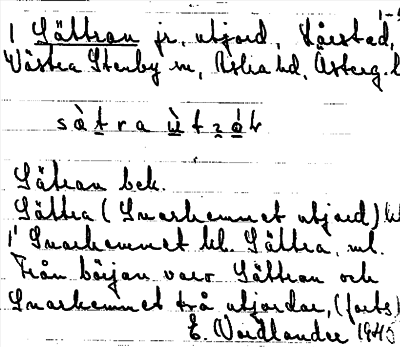 1 Sättran fr. utjord, Kårestad,
Västra Stenby sn, Aska hd, Österg. l
sàtra ùtzók
Sätran bek.
Sättra (Snarhemmet utjord) kl
1 Snarhemmet kl. Sättra, ml.
Från början voro Sättran och
Snarhemmet två utjordar, (forts)
E. Nordlander 1945